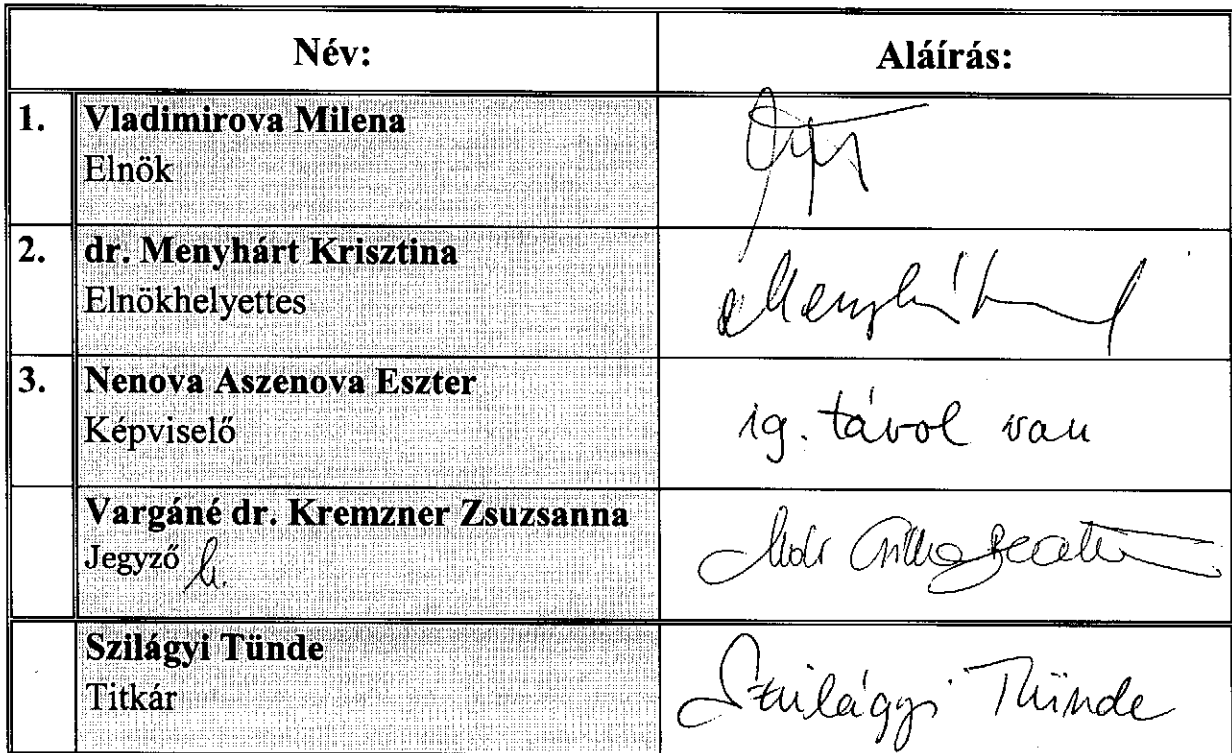 Név: Aláírás:
1. Vladimirova Milena
Elnök
2. dr. Menyhárt Krisztina
Elnökhelyettes
3. Nenova Aszenova Eszter ig. távol van
Képviselő
Vargáné dr. Kremzner Zsuzsanna
Jegyző h.
Szilágyi Tünde Szilágyi Tünde
Titkár